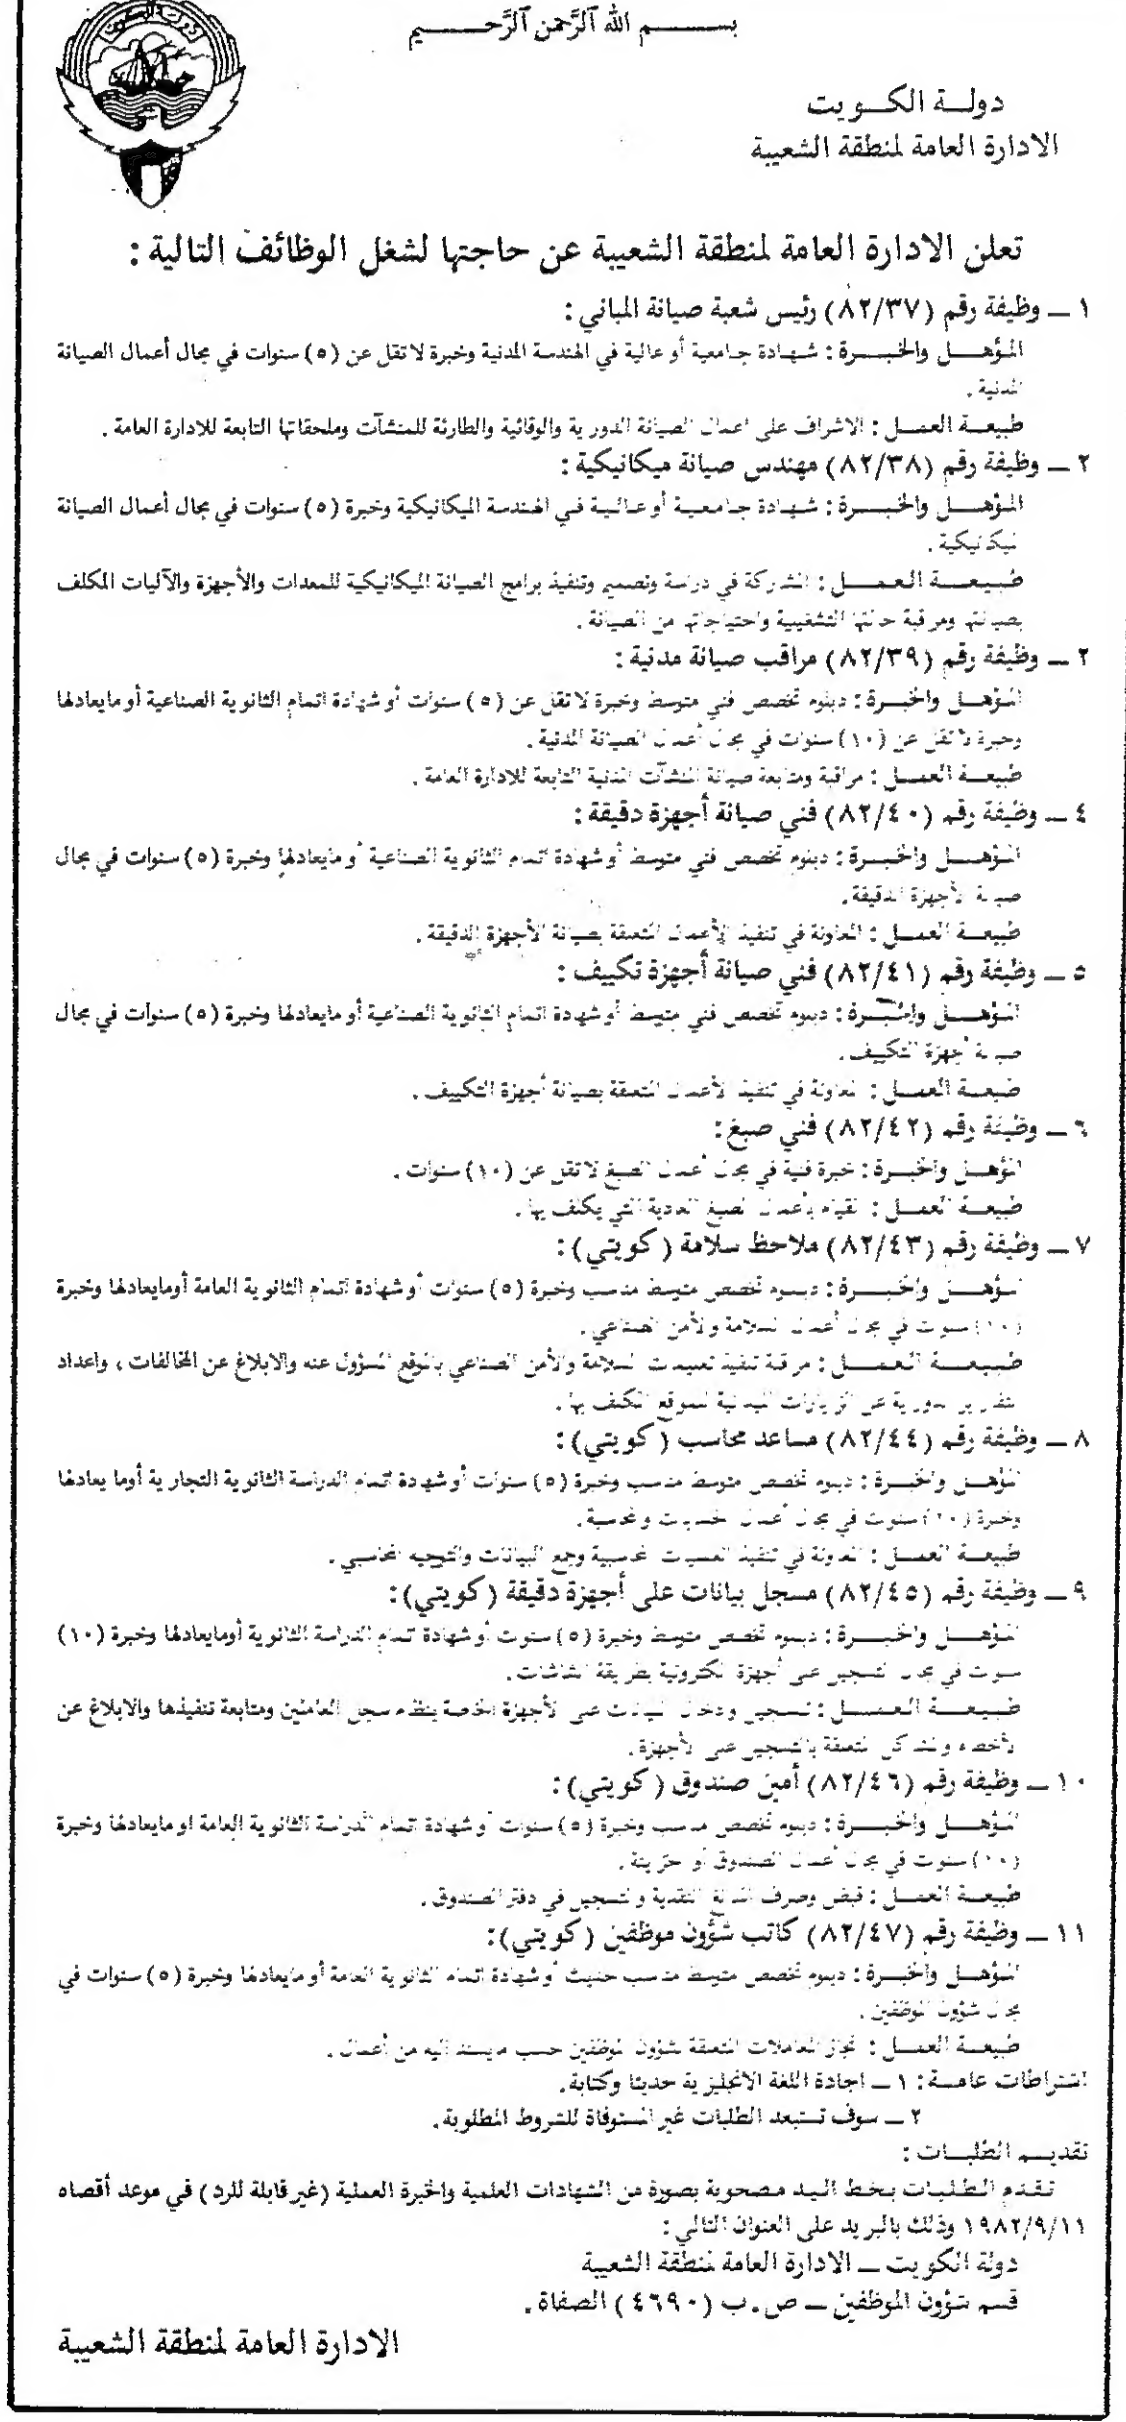 دولة الكويت
بسم الله الرحمن الرحيم
دولة الكويت
الادارة العامة لمنطقة الشعيبة
تعلن الادارة العامة لمنطقة الشعيبة عن حاجتها لشغل الوظائف التالية :
١ ــ وظيفة رقم (٨٢/٣٧) رئيس شعبة صيانة المباني :
المؤهل والخبرة : شهادة جامعية أو عالية في الهندسة المدنية وخبرة لا تقل عن (٥) سنوات في مجال أعمال الصيانة
المدنية .
طبيعة العمل : الاشراف على اعمال الصيانة الدورية والوقائية والطارئة للمنشآت وملحقاتها التابعة للادارة العامة .
٢ ــ وظيفة رقم (٨٢/٣٨) مهندس صيانة ميكانيكية :
المؤهل والخبرة : شهادة جامعية أو عالية في الهندسة الميكانيكية وخبرة (٥) سنوات في مجال أعمال الصيانة
الميكانيكية .
طبيعة العمل : المشاركة في دراسة وتصميم وتنفيذ برامج الصيانة الميكانيكية للمعدات والأجهزة والآليات المكلف
بصيانتها ومراقبة حالتها التشغيلية واحتياجاتها من الصيانة .
٣ ــ وظيفة رقم (٨٢/٣٩) مراقب صيانة مدنية :
المؤهل والخبرة : دبلوم تخصص فني متوسط وخبرة لا تقل عن (٥) سنوات أو شهادة اتمام الثانوية الصناعية أو مايعادلها
وخبرة لا تقل عن (١٠) سنوات في مجال أعمال الصيانة المدنية .
طبيعة العمل : مراقبة ومتابعة صيانة المنشآت المدنية التابعة للادارة العامة .
٤ ــ وظيفة رقم (٨٢/٤٠) فني صيانة أجهزة دقيقة :
المؤهل والخبرة : دبلوم تخصص فني متوسط أو شهادة اتمام الثانوية الصناعية أو مايعادلها وخبرة (٥) سنوات في مجال
صيانة الأجهزة الدقيقة .
طبيعة العمل : المعاونة في تنفيذ الأعمال المتعلقة بصيانة الأجهزة الدقيقة .
٥ ــ وظيفة رقم (٨٢/٤١) فني صيانة أجهزة تكييف :
المؤهل والخبرة : دبلوم تخصص فني متوسط أو شهادة اتمام الثانوية الصناعية أو مايعادلها وخبرة (٥) سنوات في مجال
صيانة أجهزة التكييف .
طبيعة العمل : المعاونة في تنفيذ الأعمال المتعلقة بصيانة أجهزة التكييف .
٦ ــ وظيفة رقم (٨٢/٤٢) فني صبغ :
المؤهل والخبرة : خبرة فنية في مجال أعمال الصبغ لا تقل عن (١٠) سنوات .
طبيعة العمل : القيام بأعمال الصبغ العادية التي يكلف بها .
٧ ــ وظيفة رقم (٨٢/٤٣) ملاحظ سلامة (كويتي) :
المؤهل والخبرة : دبلوم تخصص متوسط مناسب وخبرة (٥) سنوات أو شهادة اتمام الثانوية العامة أومايعادلها وخبرة
(١٠) سنوات في مجال أعمال السلامة والأمن الصناعي .
طبيعة العمل : مراقبة تنفيذ تعليمات السلامة والأمن الصناعي بالموقع المسؤول عنه والابلاغ عن المخالفات ، واعداد
التقارير الدورية عن الزيارات الميدانية للموقع المكلف بها .
٨ ــ وظيفة رقم (٨٢/٤٤) مساعد محاسب (كويتي) :
المؤهل والخبرة : دبلوم تخصص متوسط مناسب وخبرة (٥) سنوات أو شهادة اتمام الدراسة الثانوية التجارية أوما يعادلها
وخبرة (١٠) سنوات في مجال أعمال الحسابات والمحاسبة .
طبيعة العمل : المعاونة في تنفيذ العمليات المحاسبية وجمع البيانات والتوجيه المحاسبي .
٩ ــ وظيفة رقم (٨٢/٤٥) مسجل بيانات على أجهزة دقيقة (كويتي) :
المؤهل والخبرة : دبلوم تخصص متوسط وخبرة (٥) سنوات أو شهادة اتمام الدراسة الثانوية أومايعادلها وخبرة (١٠)
سنوات في مجال التسجيل على أجهزة الكترونية بطريقة الشاشات .
طبيعة العمل : تسجيل وادخال البيانات على الأجهزة الخاصة بنظام سجل العاملين ومتابعة تنفيذها والابلاغ عن
الأخطاء والمشاكل المتعلقة بالتسجيل على الأجهزة .
١٠ ــ وظيفة رقم (٨٢/٤٦) أمين صندوق (كويتي) :
المؤهل والخبرة : دبلوم تخصص مناسب وخبرة (٥) سنوات أو شهادة اتمام الدراسة الثانوية العامة او مايعادلها وخبرة
(١٠) سنوات في مجال أعمال الصندوق أو خزينة .
طبيعة العمل : قبض وصرف المبالغ النقدية والتسجيل في دفتر الصندوق .
١١ ــ وظيفة رقم (٨٢/٤٧) كاتب شؤون موظفين (كويتي) :
المؤهل والخبرة : دبلوم تخصص متوسط مناسب حديث أو شهادة اتمام الثانوية العامة أو مايعادلها وخبرة (٥) سنوات في
مجال شؤون الموظفين .
طبيعة العمل : انجاز المعاملات المتعلقة بشؤون الموظفين حسب مايسند اليه من أعمال .
اشتراطات عامة : ١ ــ اجادة اللغة الانجليزية حديثا وكتابة .
٢ ــ سوف تستبعد الطلبات غير المستوفاة للشروط المطلوبة .
تقديم الطلبات :
تقدم الطلبات بخط اليد مصحوبة بصورة من الشهادات العلمية والخبرة العملية (غير قابلة للرد) في موعد أقصاه
١٩٨٢/٩/١١ وذلك بالبريد على العنوان التالي :
دولة الكويت ــ الادارة العامة لمنطقة الشعيبة
قسم شؤون الموظفين ــ ص.ب (٤٦٩٠) الصفاة .
الادارة العامة لمنطقة الشعيبة